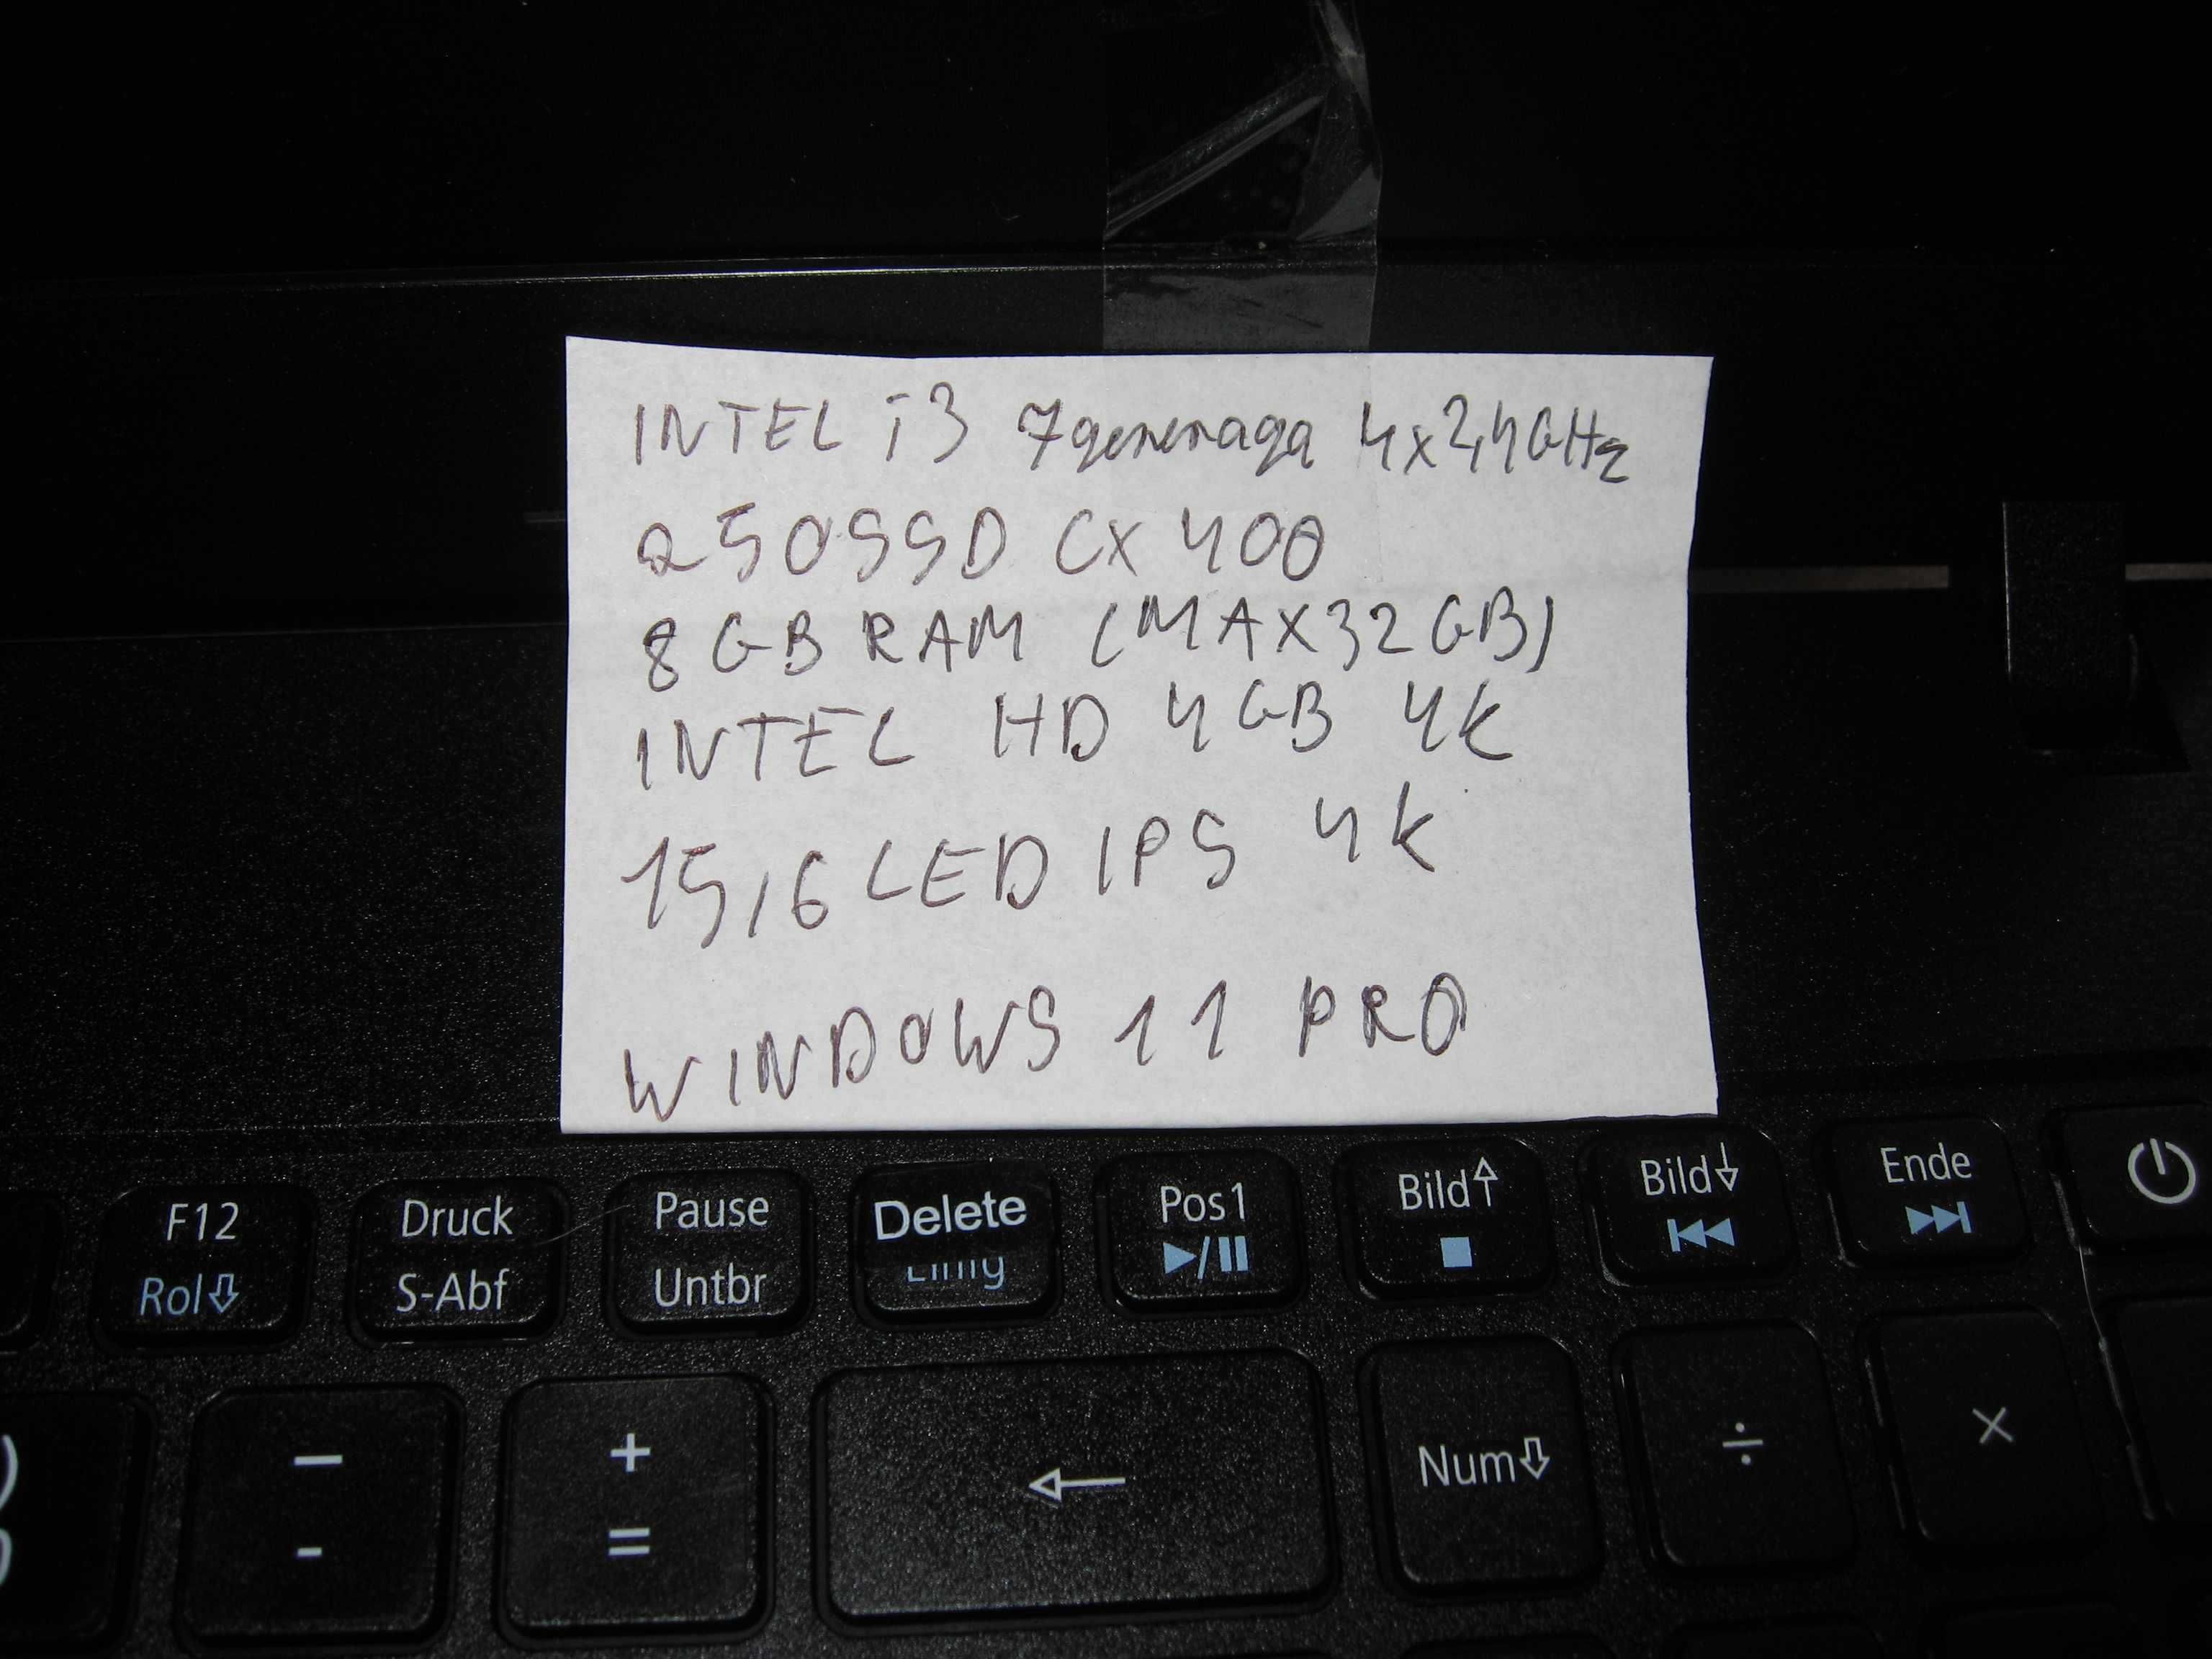 INTEL i3 7generacja 4x2,4GHz
250SSD CX 400
8 GB RAM (MAX32GB)
INTEL HD 4GB 4K
15,6 LED IPS 4K
WINDOWS 11 PRO
F12 Druck Pause Delete Pos1 Bild Bild Ende
Rol S-Abf Untbr
- + Num ÷ ×
- =